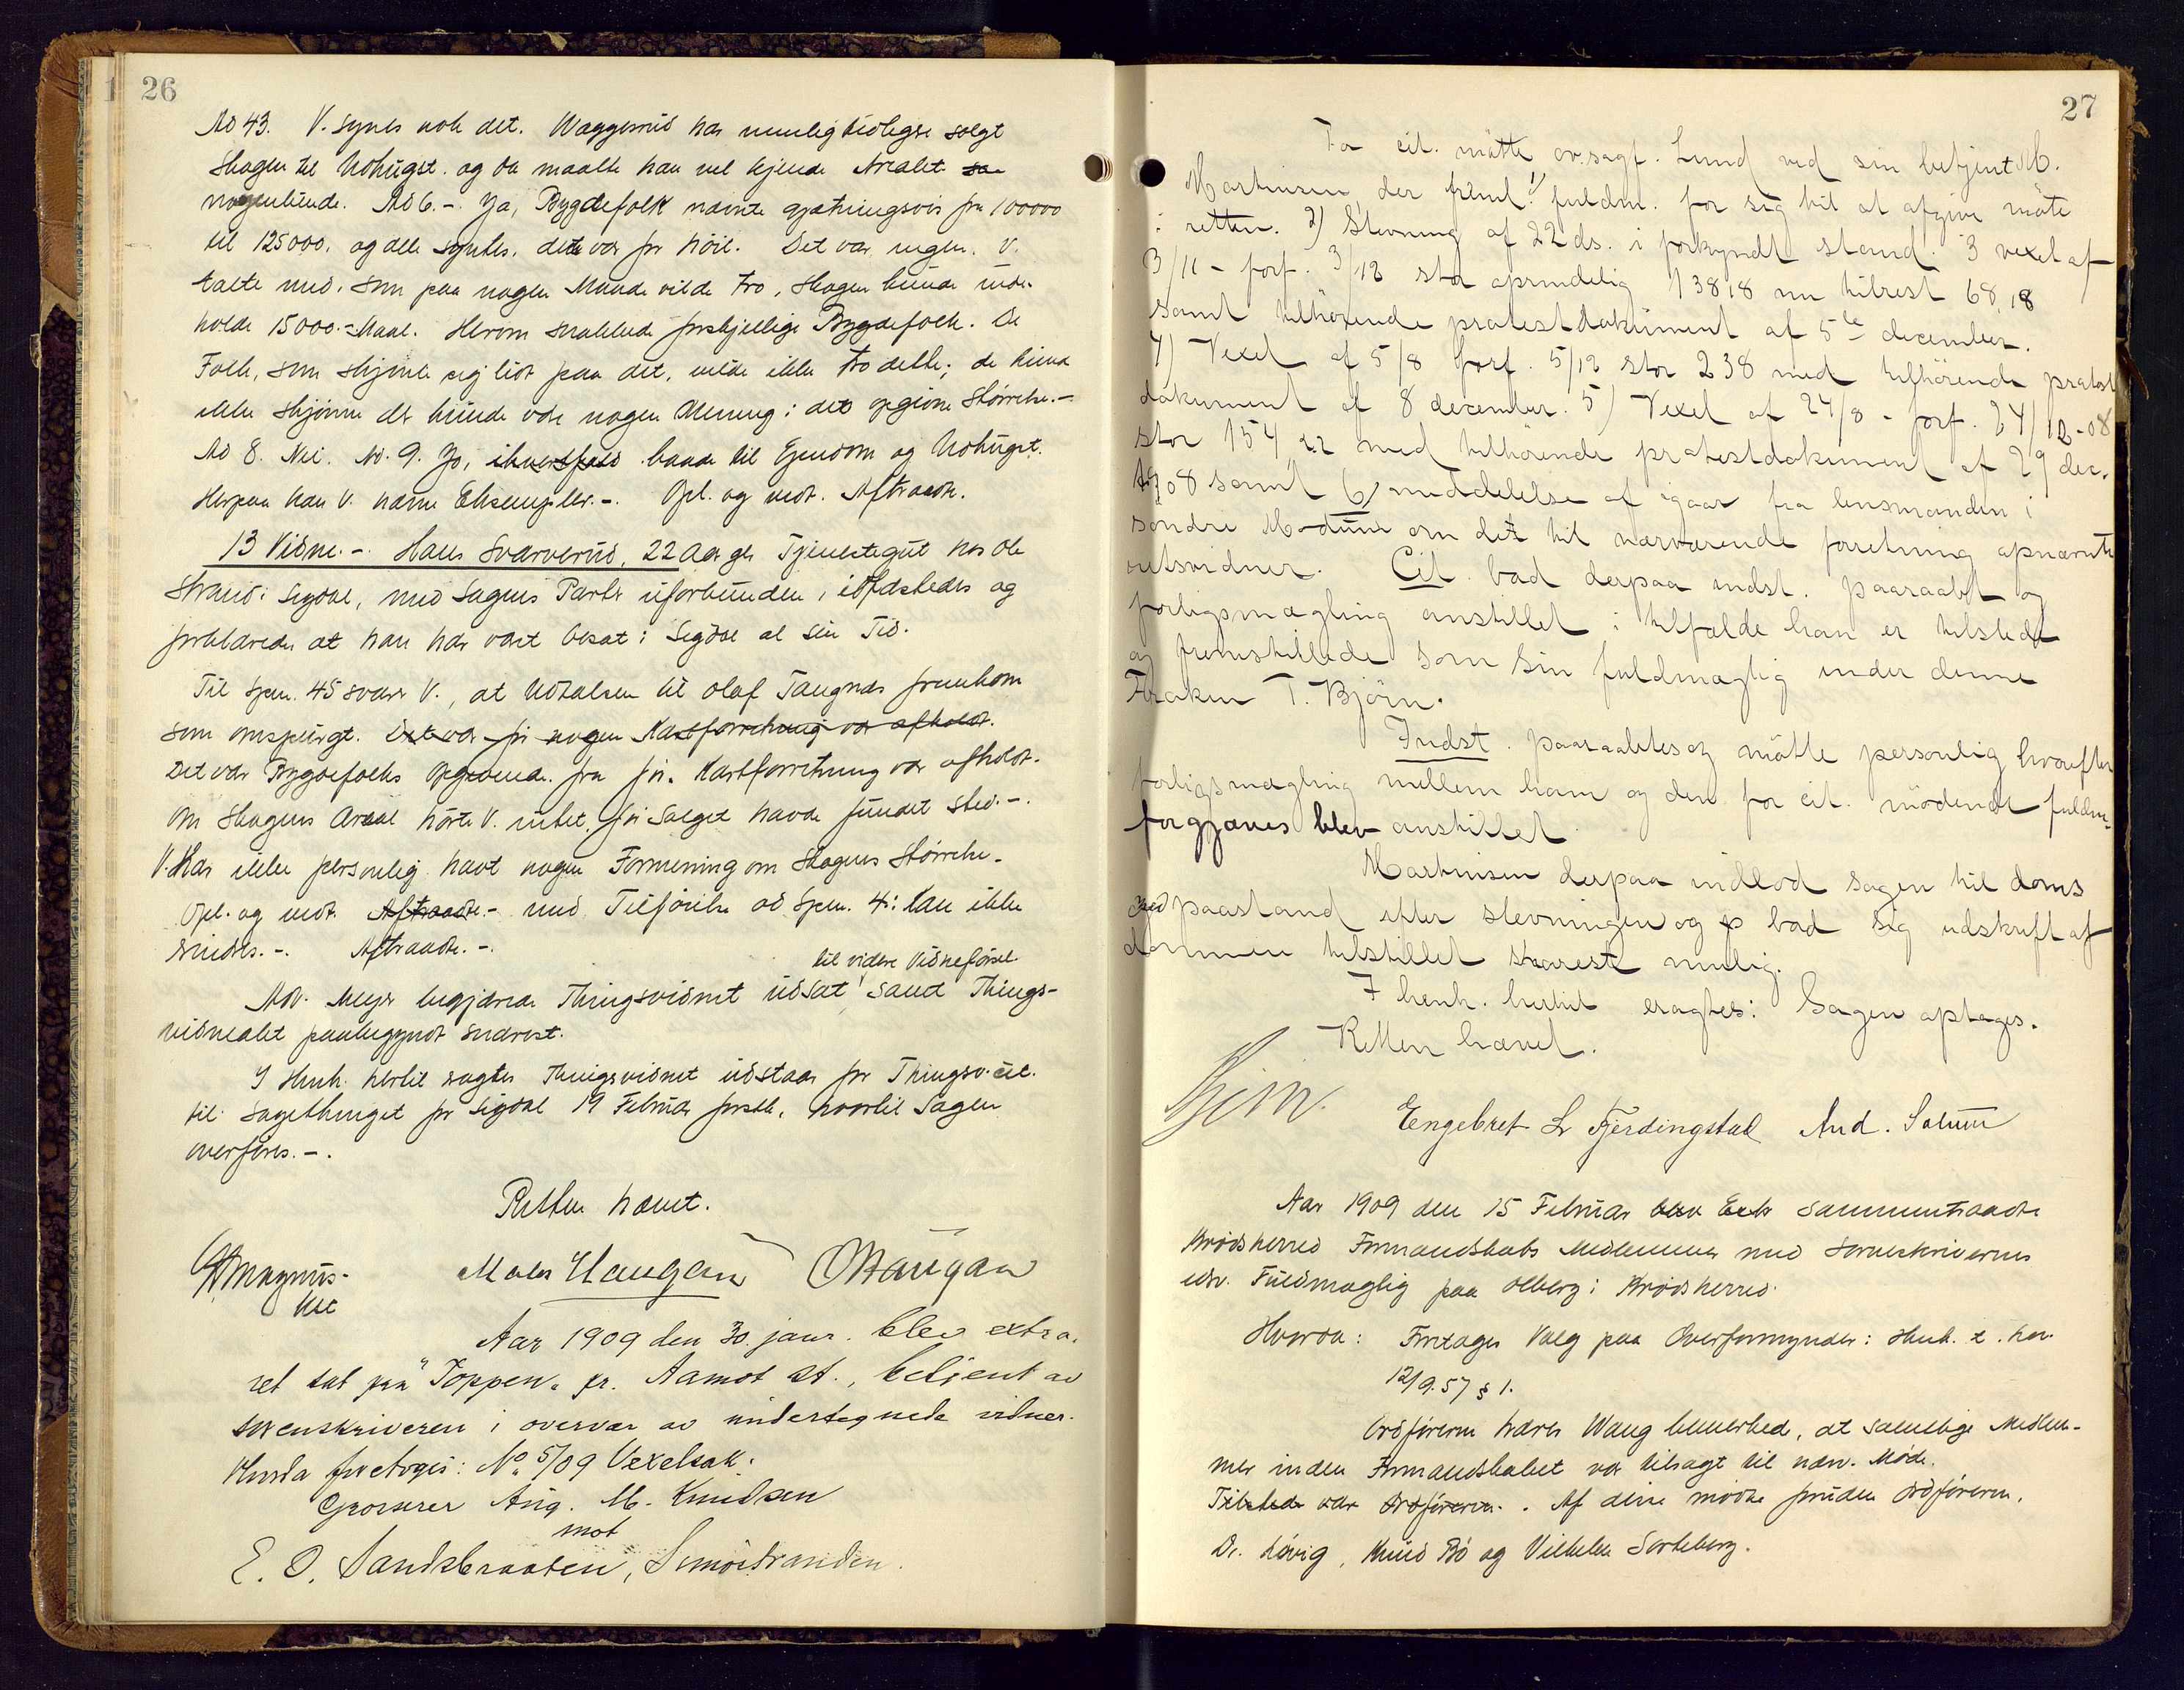 26
Ad 43. V. synes nok det. Waggerud har nemlig tidligere solgt
Skogen til Udhugst. og da maatte han vel kjende Arealet
nogenlunde. Ad 6.-. Ja, Bygdefolk nævnte gjætningsvis fra 100000
til 125000. og alle syntes, dette var for høit. Det var ingen, V.
talte med, som paa nogen Maade vilde tro, Skogen kunde inde-
holde 15000.- Maal. Herom snakkede forskjellige Bygdefolk. De
Folk, som skjønte sig lidt paa det, vilde ikke tro dette; de kunde
ikke skjønne der kunde være nogen Mening i det opgivne Størrelse.-
Ad 8. Nei. Ad. 9. Jo, ihvertfald baade til Eiendom og Udhugst.
Herpaa kan V. nævne Eksempler.-. Opl. og vedt. Aftraadte.
13 Vidne.-. Hans Svarverud, 22 Aar gl. Tjenestegut hos Ole
Strand i Sigdal, med Sagens Parter uforbunden, edfæstedes og
forklarede at han har været bosat i Sigdal al sin Tid.
Til Spm. 45 svarer V., at Udtalelsen til Olaf Tangnæs fremkom
som omspurgt. Det var før nogen Kartforretning var afholdt.
Det var Bygdefolks Opgivende fra før Kartforretning var afholdt.
Om Skogens Areal hørte V. intet, før Salget havde fundet sted.-.
V. Har ikke personlig havt nogen Formening om Skogens Størrelse.
Opl. og vedt. Aftraadte.- med Tilføielse ad Spm. 4: kan ikke
mindes.-. Aftraadte.-.
til videre Vidneførsel
Adv. Meyer begjærede Thingsvidnet udsat samt Things-
vidneaktet paabegyndt snarest.
I Henh. hertil eragtes Thingsvidnet udstaar for Thingsv. cit.
til Sagethinget for Sigdal 19 Februar førstk., hvortil Sagen
overføres.-.
Retten hævet.
Magnus
kst
Haugan
O Haugan
Aar 1909 den 30 janr. blev extra-
ret sat paa "Toppen" pr. Aamot st., betjent av
sorenskriveren i overvær av undertegnede vidner.
Hvorda foretoges: No 5/09 Vexelsak.
Grosserer Aug. M. Knudsen
mot
E. O. Sandsbraaten, Simostranden.
27
For cit. mötte ov.sagf. Lund ved sin betjent M.
Martinsen, der freml. 1) fuldm. for sig til at afgive möte
i retten. 2) Stevning af 22 ds. i forkyndt stand. 3 vexel af
3/11 - forf. 3/12 stor oprindelig 138 18 nu tilrest 68,18
samt tilhörende protestdokument af 5te december.
4) Vexel af 5/8 forf. 5/12 stor 238 med tilhörende protest
dokument af 8 december. 5) Vexel af 24/8 - forf. 24/12-08
stor 154,22 med tilhörende protestdokument af 29 dec.
1908 samt 6) meddelelse af igaar fra lensmanden i
söndre Modum om det til nærværende forretning opnævnte
retsvidner. Cit. bad derpaa indst. paaraabt og
forligsmægling anstillet i tilfælde han er tilstede
og fremstillede som sin fuldmægtig under denne
Frøken T. Björn.
Indst. paaraabtes og mötte personlig hvorefter
forligsmægling mellem ham og den for cit. mödende fuldm.
forgjæves blev anstillet
Martinsen derpaa indlod sagen til doms
med paastand efter stevningen og bad sig udskrift af
dommen tilstillet snarest mulig.
I henh. hertil eragtes: Sagen optages.
Retten hævet.
Engebret L Fjerdingstad And. Solum
Aar 1909 den 15 Februar sammentraadte
Krødsherred Formandskabs Medlemmer med Sorenskriverens
edsv. Fuldmægtig paa Olberg i Krødsherred.
Hvorda: Foretages Valg paa Overformynder i Henh. t. kav.
12/9.57 § 1.
Ordføreren Haavar Waug bemerked, at samtlige Medlem-
mer inden Formandskabet var tilsagt til nærv. Møde.
Tilstede var Ordføreren. . Af disse mødte foruden Ordføreren,
Dr. Løvig, Knud Bø og Vilhelm Sorteberg.